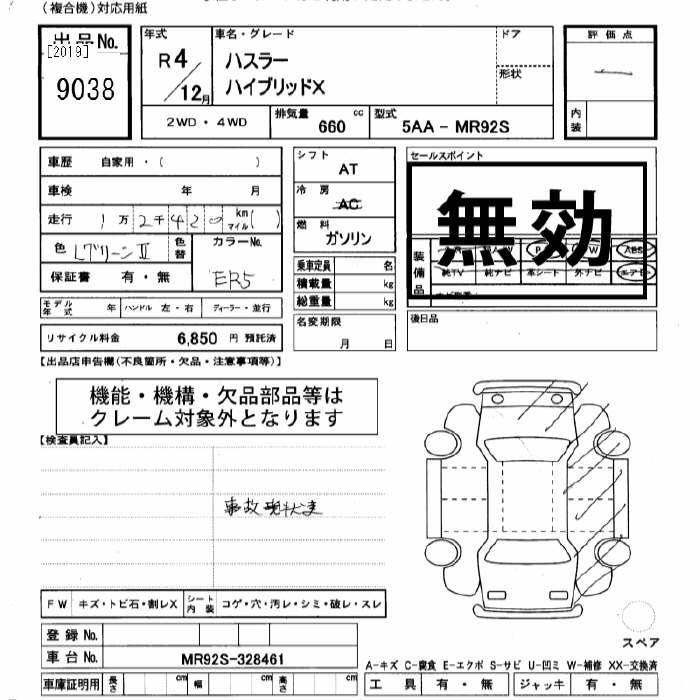 (複合機)対応用紙
出品No.
[2019]
9038
年式
R4/12月
車名・グレード
ハスラー
ハイブリッドX
ドア
形状
評価点
内装
2WD・4WD
排気量 660 cc
型式 5AA-MR92S
車歴 自家用・( )
車検 年 月
走行 1万2千420 km マイル( )
色 LグリーンII
色替
カラーNo.
ER5
保証書 有・無
シフト
AT
冷房
AC
燃料
ガソリン
乗車定員 名
積載量 kg
総重量 kg
セールスポイント
無効
装備品
純TV 純ナビ 革シート 外ナビ エアB
モデル年式 年 ハンドル 左・右 ディーラー・並行
リサイクル料金 6,850 円 預託済
名変期限
月 日
後日品
【出品店申告欄(不良箇所・欠品・注意事項等)】
機能・機構・欠品部品等は
クレーム対象外となります
【検査員記入】
事故現状車
FW キズ・トビ石・割レX
シート内装 コゲ・穴・汚レ・シミ・破レ・スレ
登録No.
車台No. MR92S-328461
車庫証明用 長さ cm 幅 cm 高さ cm
スペア
A-キズ C-腐食 E-エクボ S-サビ U-凹ミ W-補修 XX-交換済
工具 有・無 ジャッキ 有・無